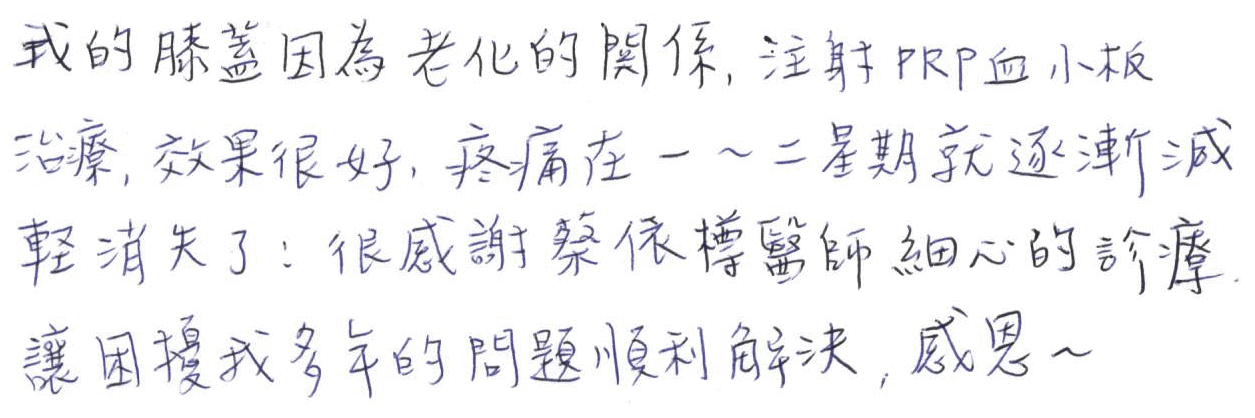 我的膝蓋因為老化的關係, 注射PRP血小板
治療, 效果很好, 疼痛在一~二星期就逐漸減
輕消失了! 很感謝蔡依樽醫師細心的診療.
讓困擾我多年的問題順利解決, 感恩~